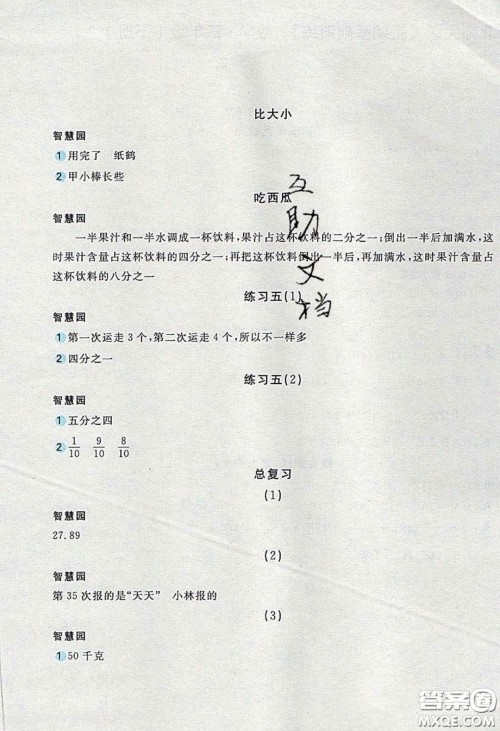 比大小
智慧园
1 用完了 纸鹤
2 甲小棒长些
吃西瓜
智慧园
一半果汁和一半水调成一杯饮料,果汁占这杯饮料的二分之一;倒出一半后加满水,这
时果汁含量占这杯饮料的四分之一;再把这杯饮料倒出一半后,再加满水,这时果汁含量占
这杯饮料的八分之一
练习五(1)
智慧园
1 第一次运走3个,第二次运走4个,所以不一样多
2 四分之一
练习五(2)
智慧园
1 五分之四
2 1/10 9/10 8/10
总复习
(1)
智慧园
27.89
(2)
智慧园
第35次报的是“天天” 小林报的
(3)
智慧园
1 50千克
互助文档
答案圈
MXQE.COM